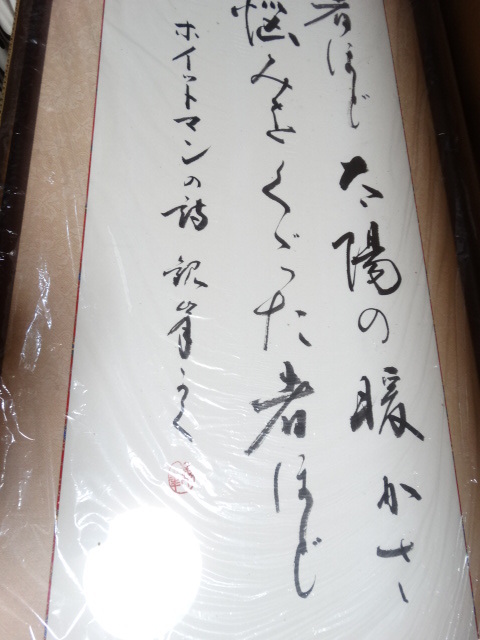 者ほど 太陽の暖かさ
悩みをくぐった者ほど
ホイットマンの詩